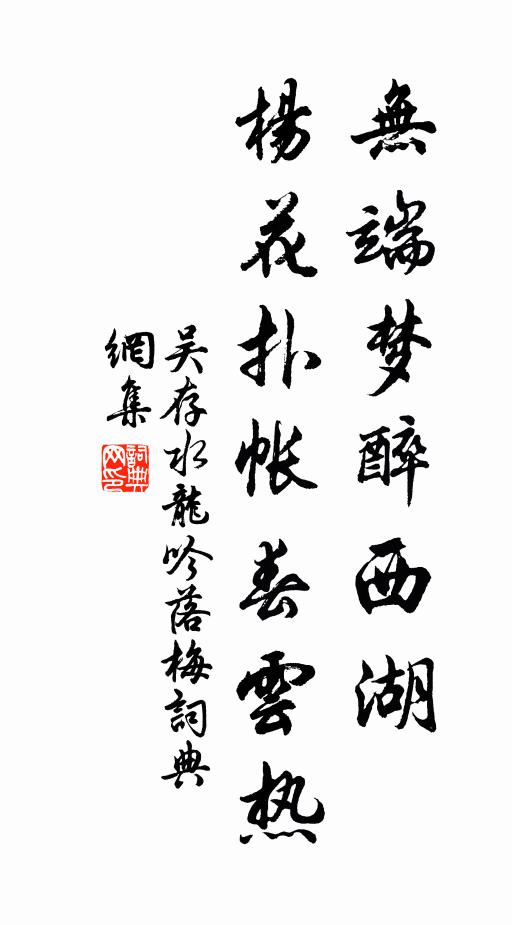 無端梦醉西湖
楊花扑帐春雲热
吴存水龍吟落梅詞典
網集
詞典
网印